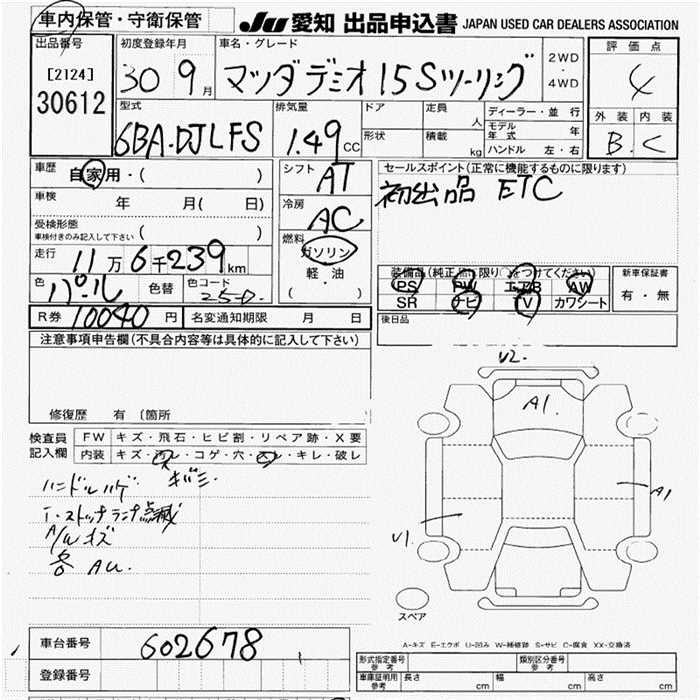 車内保管・守衛保管
JU 愛知 出品申込書 JAPAN USED CAR DEALERS ASSOCIATION
出品番号
[2124]
30612
初度登録年月
30 9月
車名・グレード
マツダデミオ 15Sツーリング
2WD
・
4WD
評価点
4
外装 内装
B. C
型式
6BA.DJLFS
排気量
1.49 CC
ドア
形状
定員 人
積載 kg
ディーラー・並行
モデル年式 年
ハンドル 左・右
車歴 自家用・( )
車検 年 月( 日)
受検形態
車検付きのみ記入して下さい ( )
走行 11万6千239km
色 パール 色替 色コード 25D.
シフト AT
冷房 AC
燃料
ガソリン
軽・油
( ・ )
セールスポイント(正常に機能するものに限ります)
初出品 ETC
装備品(純正品に限り○をつけてください)
PS PW エアB AW
SR ナビ TV カワシート
新車保証書
有・無
後日品
R券 10040 円 名変通知期限 月 日
注意事項申告欄(不具合内容等は具体的に記入して下さい)
修復歴 有 〔箇所
検査員記入欄
FW キズ・飛石・ヒビ割・リペア跡・X要
内装 キズ・汚レ・コゲ・穴・スレ・キレ・破レ
キバミ
ハンドルハゲ
I・ストップランプ点滅
A/Wキズ
各 AU.
U2.
A1.
A1
U1.
スペア
A-キズ E-エクボ U-凹み W-補修跡 S-サビ C-腐食 XX-交換済
車台番号 602678
登録番号
形式指定番号 参考
類別区分番号 参考
車庫証明用 参考 長さ cm 幅 cm 高さ cm